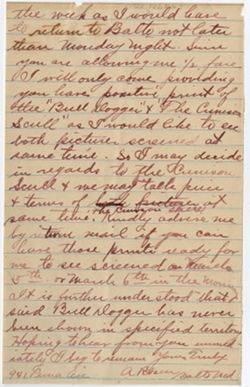 the week as I would have
to return to Balto not later
than Monday night. Since
you are allowing me ½ fare
I will only come providing
you have positive print of
the "Bull Dogger" & "The Crimson
Scull" as I would like to see
both pictures screened at
same time. So I may decide
in regards to The Crimson
Scull & we may talk price
& terms of pictures at
The Crimson
same time. Kindly advise me
by return mail if you can
have those prints ready for
me to see screened on March
5th. or March 6th in the morn
It is further understood that
said Bull Dogger has never
been shown in specified territory
Hoping to hear from you immed
iately I beg to remain Yours Truly
941 Ave A. Balto Md.